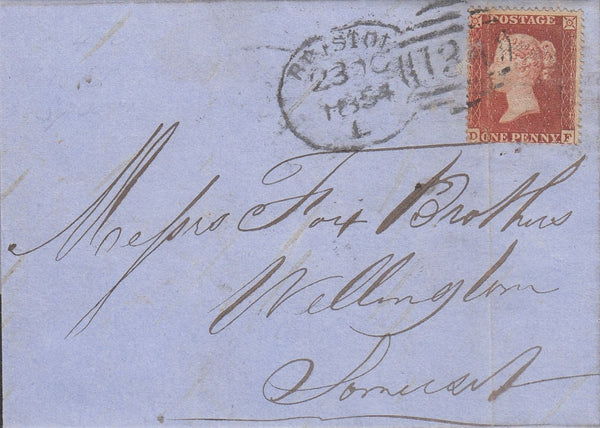 BRISTOL
1854
L
134
POSTAGE
D ONE PENNY F
Messrs Fox Brothers
Wellington
Somerset